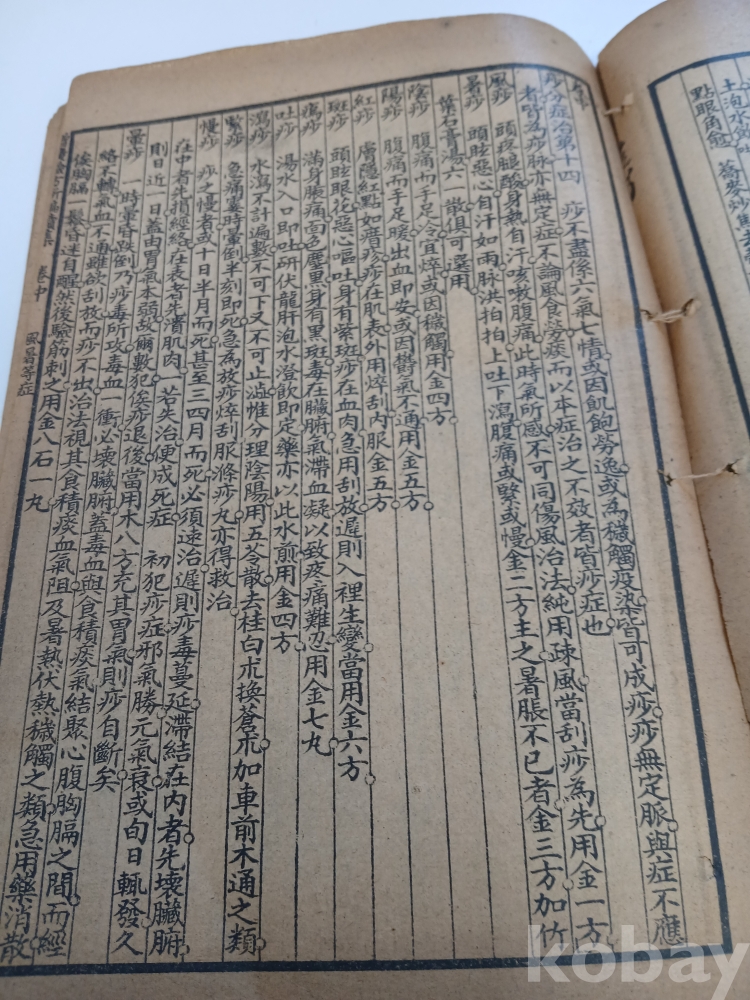 土泡水飲吐
點眼角愈
蕎麥
痧分症治第十四 痧不盡係六氣七情或因飢飽勞逸或為穢觸疫染皆可成痧痧無定脈與症不應
者皆為痧脉亦無定症不論風食勞痰而以本症治之不效者皆痧症也
風痧 頭疼腿酸身熱自汗咳嗽腹痛此時氣所感不可同傷風治法純用疎風當刮痧為先用金一方
暑痧 頭眩惡心自汗如雨脉洪拍拍上吐下瀉腹痛或緊或慢金二方主之暑脹不已者金三方加竹
葉石膏湯六一散俱可選用
陰痧 腹痛而手足冷宜焠或因穢觸用金四方
陽痧 腹痛而手足暖出血即安或因鬱氣不通用金五方
紅痧 膚隱紅點如瘄疹痧在肌表外用焠刮內服金五方
斑痧 頭眩眼花惡心嘔吐身有紫斑痧在血肉急用刮放遲則入裡生變當用金六方
滿身脹痛面色黧黑身有黑斑毒在臟腑氣滯血凝以致疫痛難忍用金七丸
吐痧 湯水入口即吐研伏龍肝泡水澄飲即定藥亦以此水煎用金四方
瀉痧 水瀉不計遍數不可下又不可止澁惟分理陰陽用五苓散去桂白朮換蒼朮加車前木通之類
緊痧 急痛霎時暈倒半刻即死急為放痧焠刮服滌痧丸亦得救治
慢痧 痧之慢者或十日半月而死甚至三四月而死必須速治遲則痧毒蔓延滯結在內者先壞臟腑
在中者先損經絡在表者先潰肌肉 若失治便成死症 初犯痧症邪氣勝元氣衰或旬日輒發久
則日近一日蓋由胃氣本弱故爾數犯後痧退後當用木八方充其胃氣則痧自斷矣
暈痧 一時暈昏跌倒乃痧毒所攻毒血一衝必壞臟腑蓋毒血與食積痰氣結聚心腹胸膈之間而經
絡不轉氣血不通雖欲刮放而痧不出治法視其食積痰血氣阻及暑熱伏熱穢觸之類急用藥消散
俟胸膈一鬆昏迷自醒然後驗筋刺之用金八石一丸
卷中 風暑等症
kobay